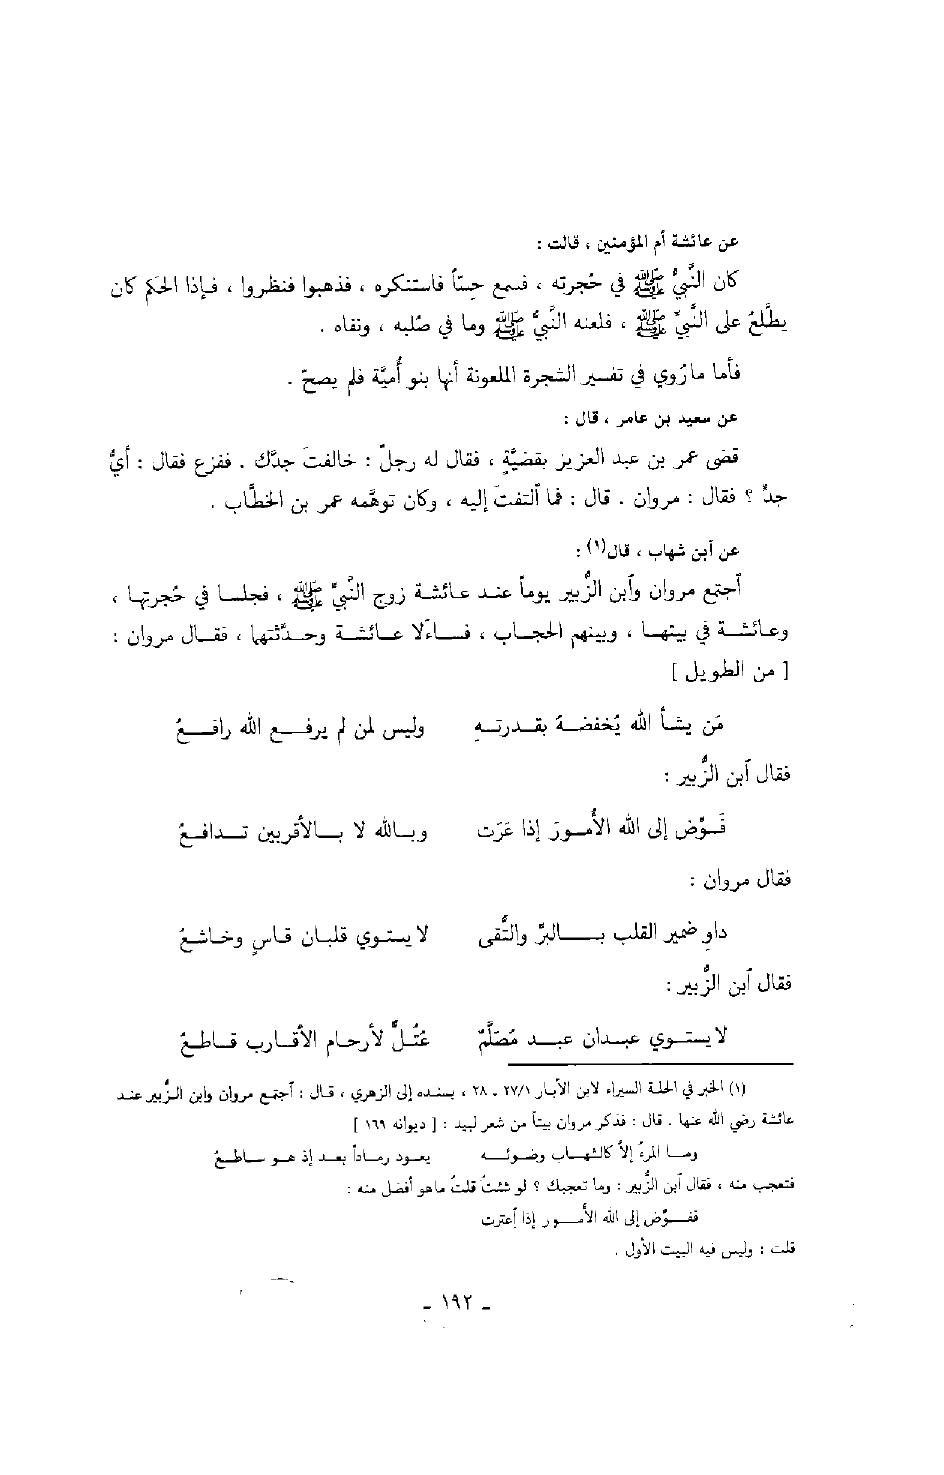 عن عائشة أم المؤمنين ، قالت :
كان النَّبيُّ ﷺ في حُجرته ، فسمع حِسّاً فاستنكره ، فذهبوا فنظروا ، فإذا الحكم كان
يطَّلعُ على النَّبيِّ ﷺ ، فلعنه النَّبيُّ ﷺ وما في صُلبه ، ونفاه .
فأما ما رُوي في تفسير الشجرة الملعونة أنها بنو أُميَّة فلم يصحّ .
عن سعيد بن عامر ، قال :
قضى عمر بن عبد العزيز بقضيَّةٍ ، فقال له رجلٌ : خالفتَ جدَّك . ففزع فقال : أيُّ
جدٍّ ؟ فقال : مروان . قال : فما ٱلتفتَ إليه ، وكان توهَّمه عمر بن الخطَّاب .
عن ٱبن شهاب ، قال(١) :
ٱجتمع مروان وٱبن الزُّبير يوماً عند عائشة زوج النَّبيِّ ﷺ ، فجلسا في حُجرتها ،
وعائشة في بيتها ، وبينهم الحجاب ، فساءَلا عائشة وحدَّثتها ، فقال مروان :
[ من الطويل ]
مَن يشأ الله يُخفضهُ بقدرتهِ وليس لمن لم يرفع الله رافعُ
فقال ٱبن الزُّبير :
فَوِّض إلى الله الأُمورَ إذا عَرَت وبالله لا بالأقربين تدافعُ
فقال مروان :
داوِ ضمير القلب بالبرِّ والتُّقى لا يستوي قلبان قاسٍ وخاشعُ
فقال ٱبن الزُّبير :
لا يستوي عبدان عبد مُصَلَّمٌ عُتُلٌّ لأرحام الأقارب قاطعُ
(١) الخبر في الحلة السيراء لابن الأبار ٢٧/١ - ٢٨ ، بسنده إلى الزهري ، قال : ٱجتمع مروان وابن الزُّبير عند
عائشة رضي الله عنها . قال : فذكر مروان بيتاً من شعر لبيد : [ ديوانه ١٦٩ ]
وما المرءُ إلاّ كالشهاب وضوئه يعود رماداً بعد إذ هو ساطعُ
فتعجب منه ، فقال ٱبن الزُّبير : وما تعجبك ؟ لو شئتُ قلتُ ما هو أفضل منه :
ففوِّض إلى الله الأُمور إذا ٱعترت
قلت : وليس فيه البيت الأول .
- ١٩٢ -